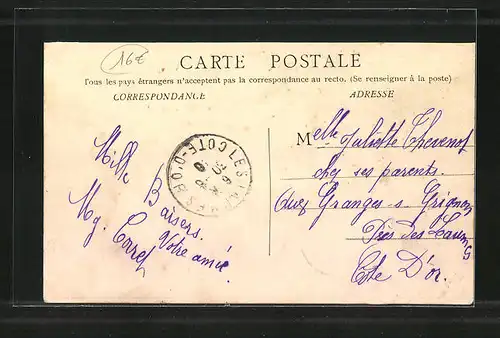 16€
CARTE POSTALE
Tous les pays étrangers n'acceptent pas la correspondance au recto. (Se renseigner à la poste)
CORRESPONDANCE
ADRESSE
Mille
Baisers.
Votre amie
Mg. Carré
LES LAUMES
COTE-D'OR
Melle Juliette Thevenot
chez ses parents.
aux Granges-s-Grignon
Près des Laumes
Côte D'or.